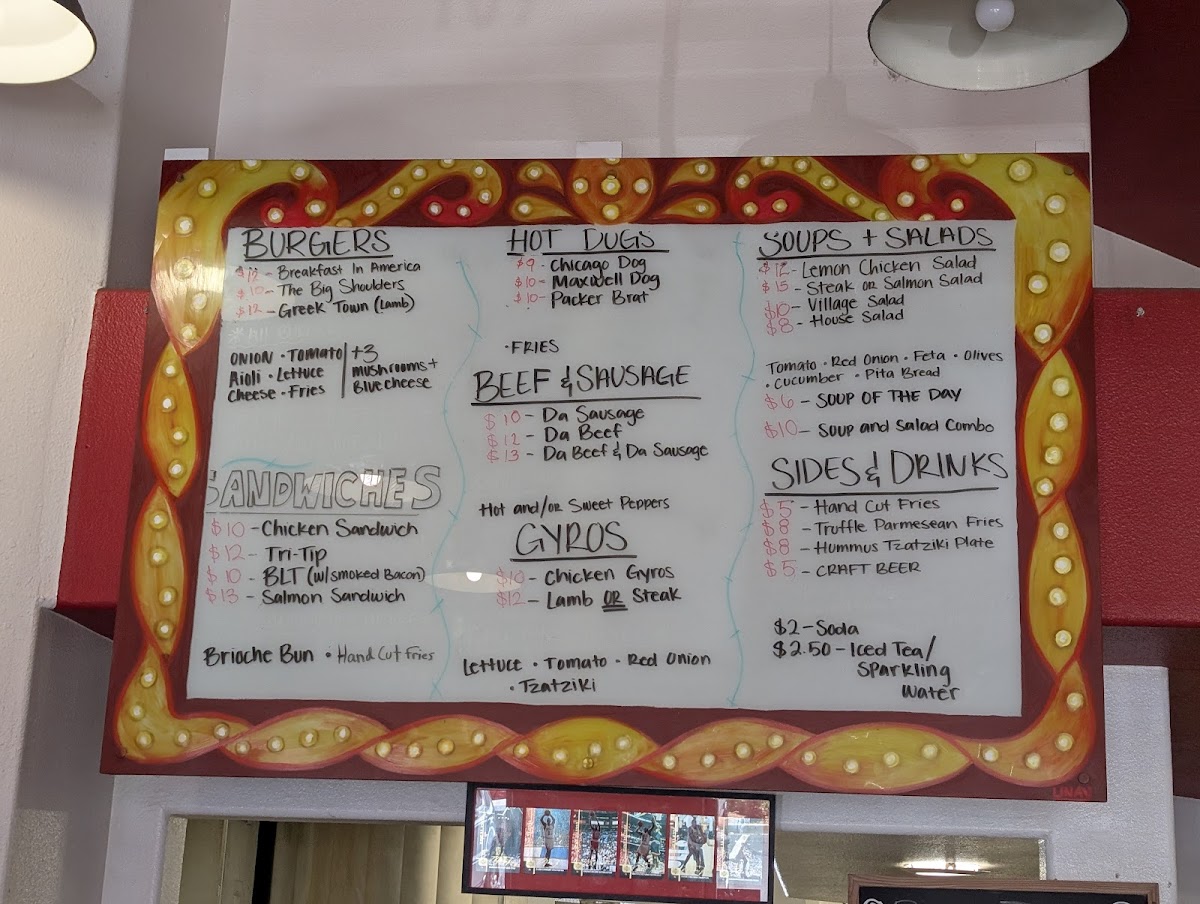 BURGERS
$12 - Breakfast In America
$10 - The Big Shoulders
$12 - Greek Town (Lamb)
ONION · Tomato | +3
Aioli · Lettuce | mushrooms +
Cheese · Fries | Blue cheese
SANDWICHES
$10 - Chicken Sandwich
$12 - Tri-Tip
$10 - BLT (w/smoked Bacon)
$13 - Salmon Sandwich
Brioche Bun · Hand Cut Fries
HOT DUGS
$9 - Chicago Dog
$10 - Maxwell Dog
$10 - Packer Brat
· FRIES
BEEF & SAUSAGE
$10 - Da Sausage
$12 - Da Beef
$13 - Da Beef & Da Sausage
Hot and/or Sweet Peppers
GYROS
$10 - Chicken Gyros
$12 - Lamb OR Steak
Lettuce · Tomato · Red Onion
· Tzatziki
SOUPS + SALADS
$12 - Lemon Chicken Salad
$15 - Steak OR Salmon Salad
$10 - Village Salad
$8 - House Salad
Tomato · Red Onion · Feta · Olives
· Cucumber · Pita Bread
$6 - SOUP OF THE DAY
$10 - Soup and Salad Combo
SIDES & DRINKS
$5 - Hand Cut Fries
$8 - Truffle Parmesean Fries
$8 - Hummus Tzatziki Plate
$5 - CRAFT BEER
$2 - Soda
$2.50 - Iced Tea/
Sparkling
Water